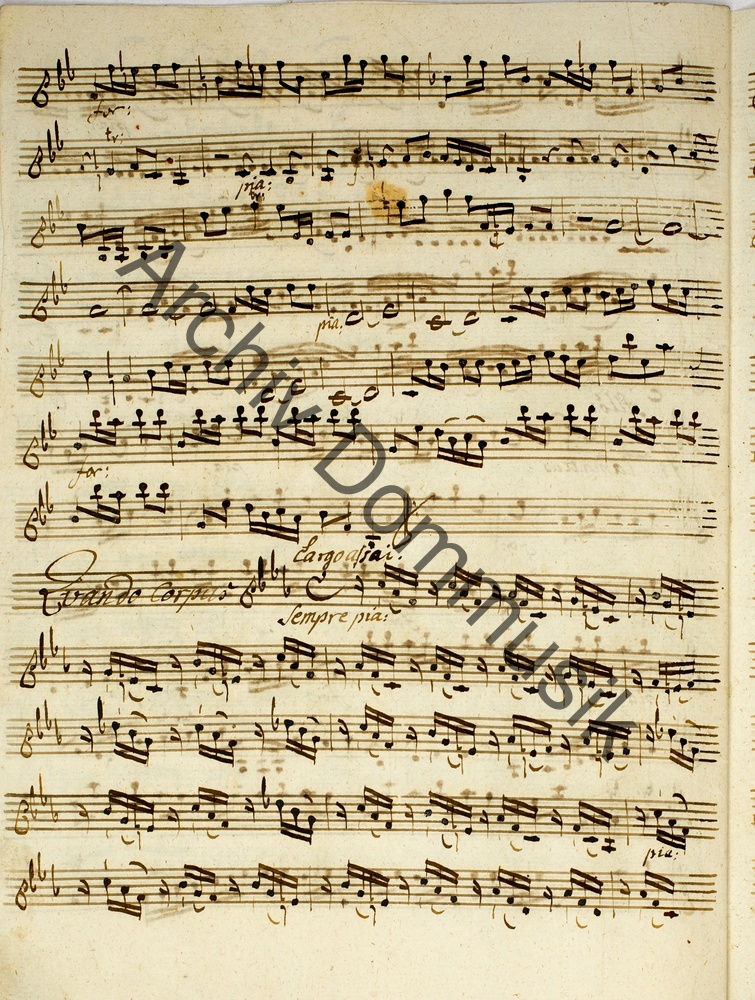 for:
tr:
pia:
pia:
for:
Largo assai:
Quando Corpus
Sempre pia:
pia:
Archiv Dommusik